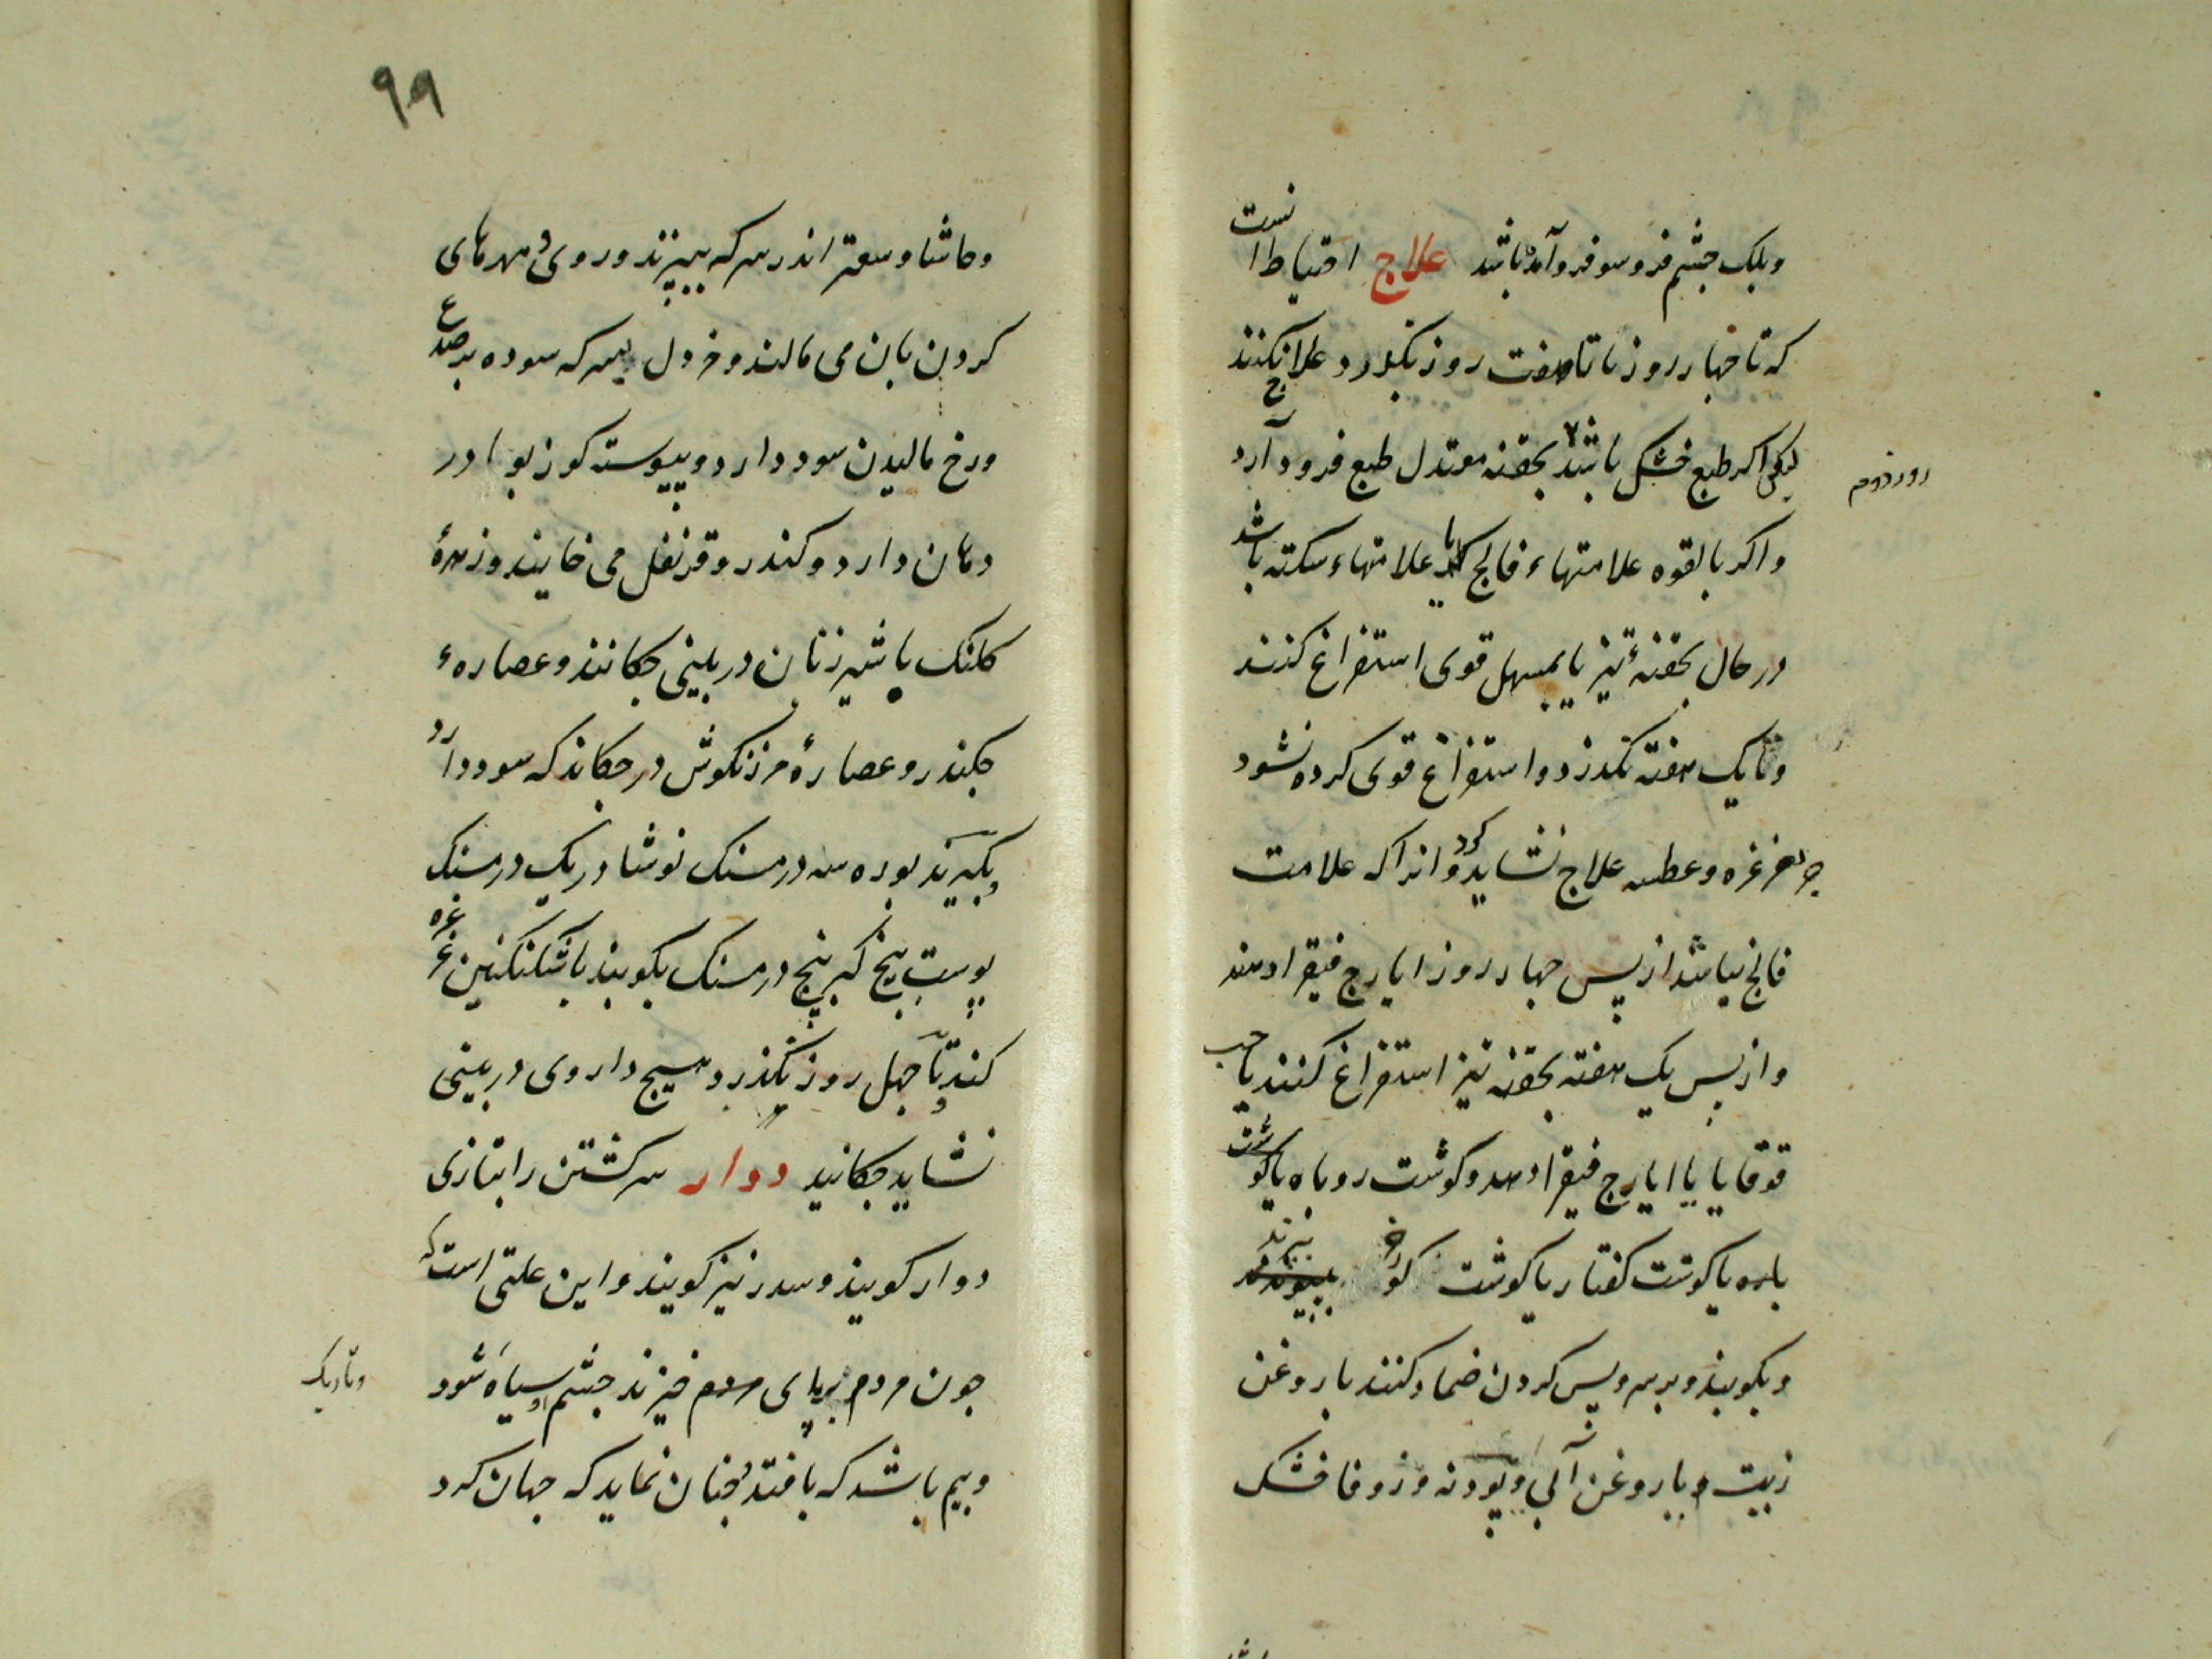 وپلک چشم فروسو فروآمده باشد علاج احتیاط انست
که تا چهار روز تا هفت روز نگذرد علاج نکنند
لیکن اگر طبع خشک باشد بحقنه معتدل طبع فرود آرد
روز دوم
واکر بالقوه علامتهاء فالج یا علامتهاء سکته باشد
در حال بحقنهٔ تیز یا بمسهل قوی استفراغ کنند
وتا یک هفته نکذرد واستفراغ قوی کرده نشود
غرغره وعطسه علاج نشاید کرد وانرا که علامت
فالج نباشد از پس چهار روز ایارج فیقرا دهند
واز پس یک هفته بحقنه تیز استفراغ کنند یا حب
قوقایا یا ایارج فیقرا دهند وکوشت روباه یا کوشت
یا کوشت کفتار یا کوشت بپزند
وبکوبند وبر سر وپس کردن ضماد کنند با روغن
زیت ویا روغن وپودنه وزوفا خشک
۹۹
وحاشا وسعتر اندر سرکه بپزند وروی ومهرهای
کردن بان می مالند وخردل بسرکه سوده بر صدغ
ورخ مالیدن سود دارد وپیوسته کوزبوا در
دهان دارد وکندر وقرنفل می خایند وزهرهٔ
کلنک با شیر زنان در بینی چکانند وعصارهء
چکندر وعصارهٔ مرزنکوش در چکاند که سود دارد
بکیرند بوره سه درمسنک نوشادر یک درمسنک
پوست بیخ کبر پنج درمسنک بکوبند باسکنکبین غرغره
کنند وتا چهل روز نکذرد هیچ داروی در بینی
نشاید چکانید دوار سرکشتن را بتازی
دوار کویند وسدر نیز کویند واین علتی است که
چون مردم برپای خیزند چشم او سیاه شود
وتاریک
وبیم باشد که بافتد وچنان نماید که جهان کرد